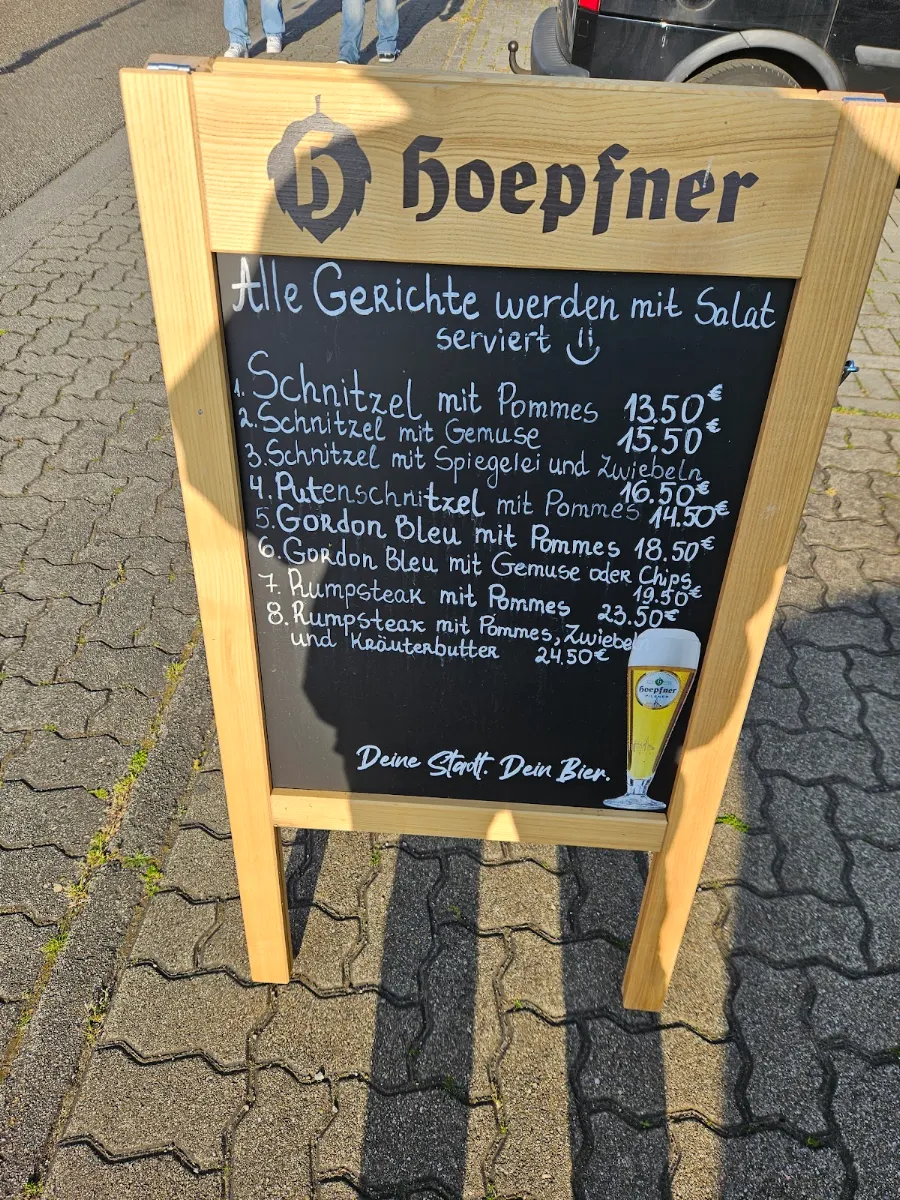 h
hoepfner
Alle Gerichte werden mit Salat
serviert
1. Schnitzel mit Pommes 13.50€
2. Schnitzel mit Gemuse 15.50€
3. Schnitzel mit Spiegelei und Zwiebeln
16.50€
4. Putenschnitzel mit Pommes 14.50€
5. Gordon Bleu mit Pommes 18.50€
6. Gordon Bleu mit Gemuse oder Chips
19.50€
7. Rumpsteak mit Pommes 23.50€
8. Rumpsteak mit Pommes, Zwiebeln
und Kräuterbutter 24,50€
hoepfner
PILSNER
Deine Stadt. Dein Bier.